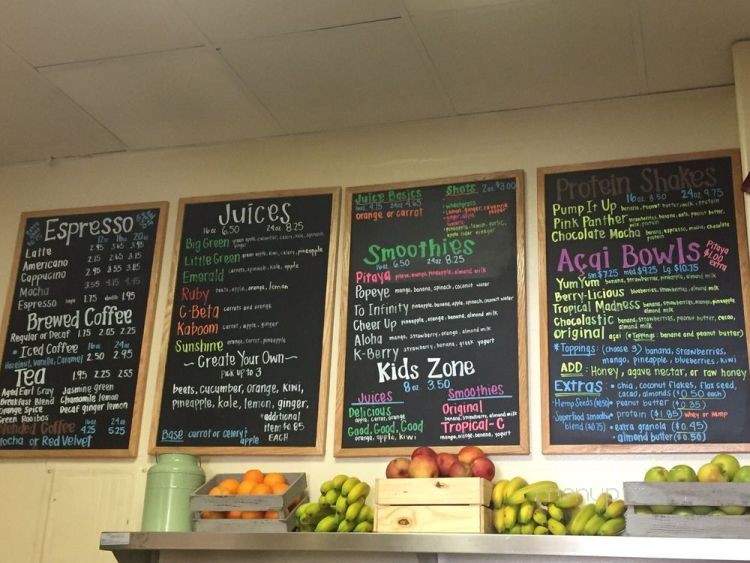 Espresso
12oz 16oz 20oz
Latte 2.95 3.45 3.95
Americano 2.15 2.45 3.15
Cappucino 2.95 3.55 3.95
Mocha 3.55 4.15 4.45
Espresso 1.75 1.95
Brewed Coffee
Regular or Decaf 1.75 2.05 2.25
*Iced Coffee 16oz 24oz
Hazelnut, Vanilla, Caramel 2.50 2.95
Tea 1.95 2.25 2.55
Aged Earl Gray Jasmine green
Breakfast Blend Chamomile lemon
Orange Spice Decaf ginger lemon
Green Rooibos
Blended Coffee 16oz 24oz
Mocha or Red Velvet 4.25 5.25
Juices
16oz 6.50 24oz 8.25
Big Green
Little Green green apple, kiwi, celery, pineapple
Emerald carrots, spinach, kale, apple
Ruby beets, apple, orange, lemon
C-Beta carrots and orange
Kaboom carrot, apple, ginger
Sunshine orange, carrot, pineapple
~ Create Your Own ~
Pick up to 3
beets, cucumber, orange, kiwi,
pineapple, kale, lemon, ginger,
*additional
item $0.85
EACH
Base: carrot or celery
Juice Basics
16oz 4.75 24oz 6.50
orange or carrot
Shots 2oz $3.00
Smoothies
16oz 6.50 24oz 8.25
Pitaya pitaya, mango, pineapple, almond milk
Popeye mango, banana, spinach, coconut water
To Infinity pineapple, banana, apple, spinach, coconut water
Cheer Up pineapple, mango, orange, almond milk
Aloha mango, strawberry, orange, almond milk
K-Berry strawberry, banana, greek yogurt
Kids Zone
8oz 3.50
Juices
Delicious
apple, carrot, orange
Good, Good, Good
orange, apple, kiwi
Smoothies
Original
banana, strawberry, almond milk
Tropical-C
mango, orange, banana, yogurt
Protein Shakes
16oz 8.50 24oz 9.75
Pump It Up
Pink Panther
Chocolate Mocha
Açai Bowls
Pitaya
$1.00
extra
Sm $7.25 med $9.25 Lg $10.75
Yum Yum
Berry-Licious blueberries, strawberries, almond milk
Tropical Madness
Chocolastic
Original açai (*Toppings: banana and peanut butter)
*Toppings: (choose 3) banana, strawberries,
mango, pineapple, blueberries, kiwi
ADD: Honey, agave nectar, or raw honey
Extras • chia, coconut flakes, flax seed,
cacao, almonds ($0.50 each)
• Hemp Seeds • peanut butter ($0.35)
• Superfood smoothie blend ($0.75) • protein ($1.85) Whey or Hemp
• extra granola ($0.45)
• almond butter ($0.50)